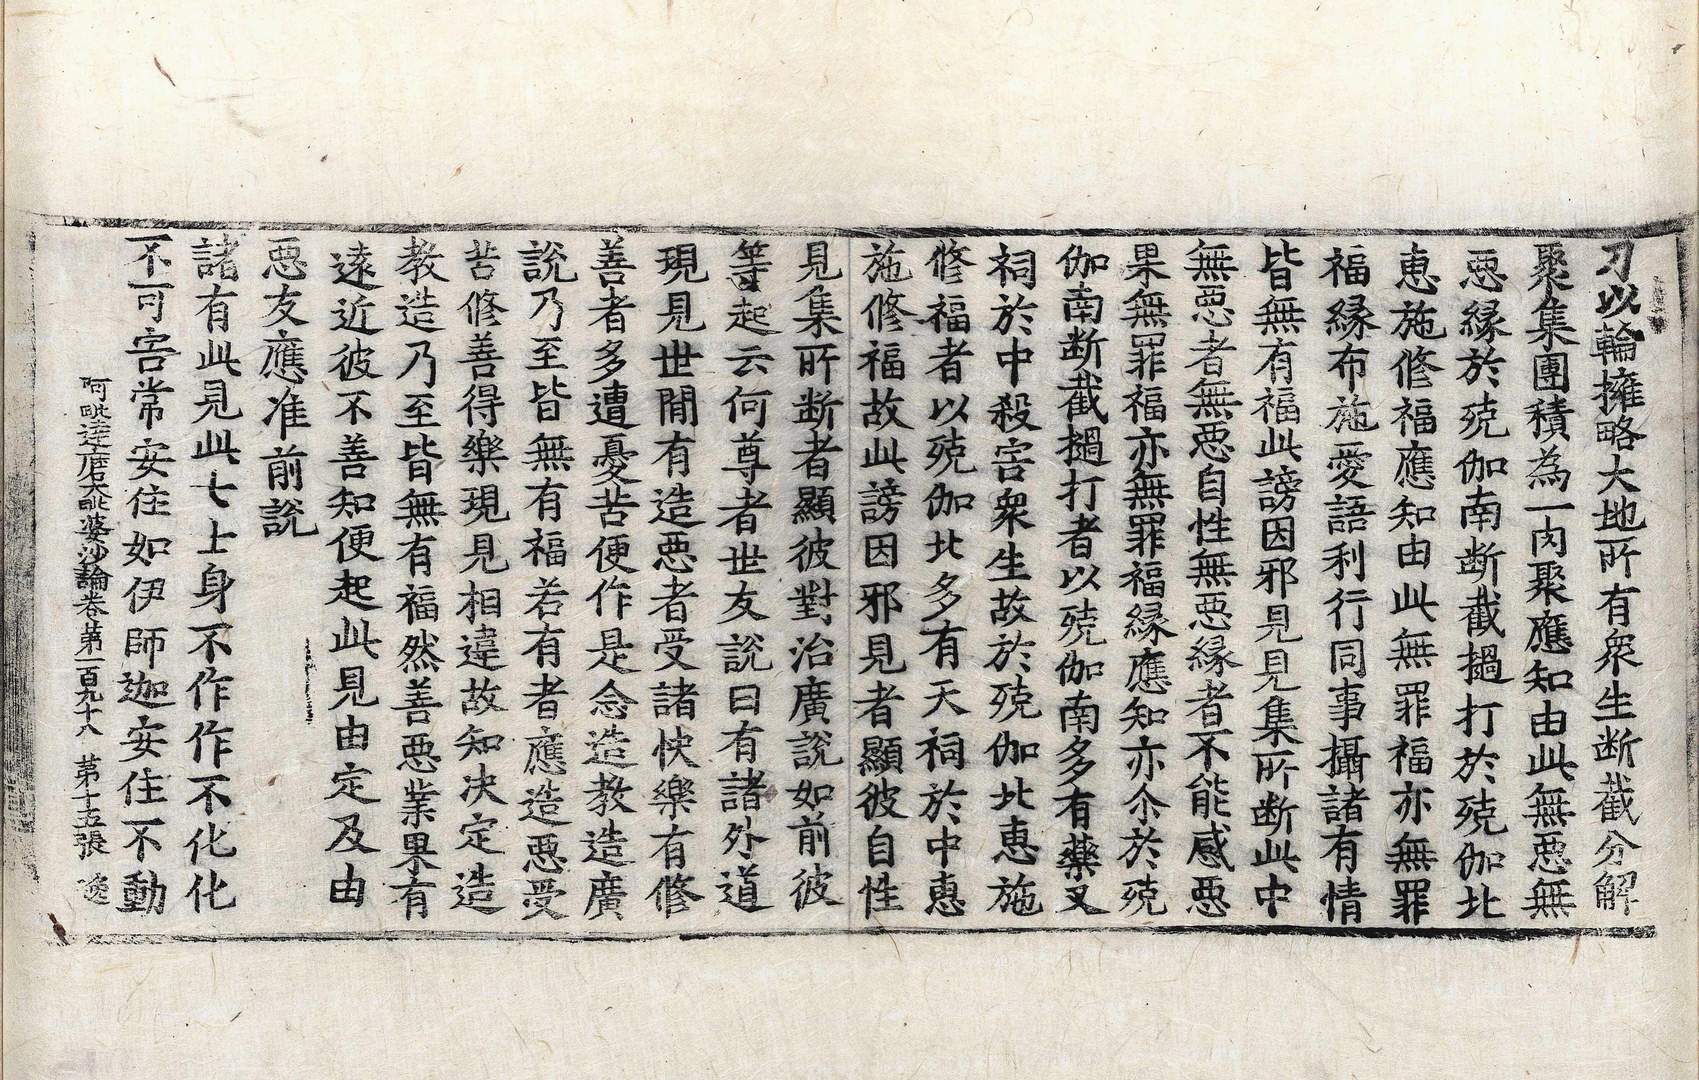 刀以輪擁略大地所有衆生断截分解
聚集團積為一肉聚應知由此無惡無
惡縁於殑伽南断截撾打於殑伽北
惠施修福應知由此無罪福亦無罪
福縁布施愛語利行同事攝諸有情
皆無有福此謗因邪見見集所断此中
無惡者無惡自性無惡縁者不能感惡
果無罪福亦無罪福縁應知亦尒於殑
伽南断截撾打者以殑伽南多有藥叉
祠於中殺害衆生故於殑伽北惠施
修福者以殑伽北多有天祠於中惠
施修福故此謗因邪見者顯彼自性
見集所断者顯彼對治廣說如前彼
等起云何尊者世友說曰有諸外道
現見世間有造惡者受諸快樂有修
善者多遭憂苦便作是念造教造廣
說乃至皆無有福若有者應造惡受
苦修善得樂現見相違故知決定造
教造乃至皆無有福然善惡業果有
遠近彼不善知便起此見由定及由
惡友應准前說
諸有此見此七士身不作作不化化
不可害常安住如伊師迦安住不動
阿毗達磨大毗婆沙論卷第一百九十八　第十五張　逸